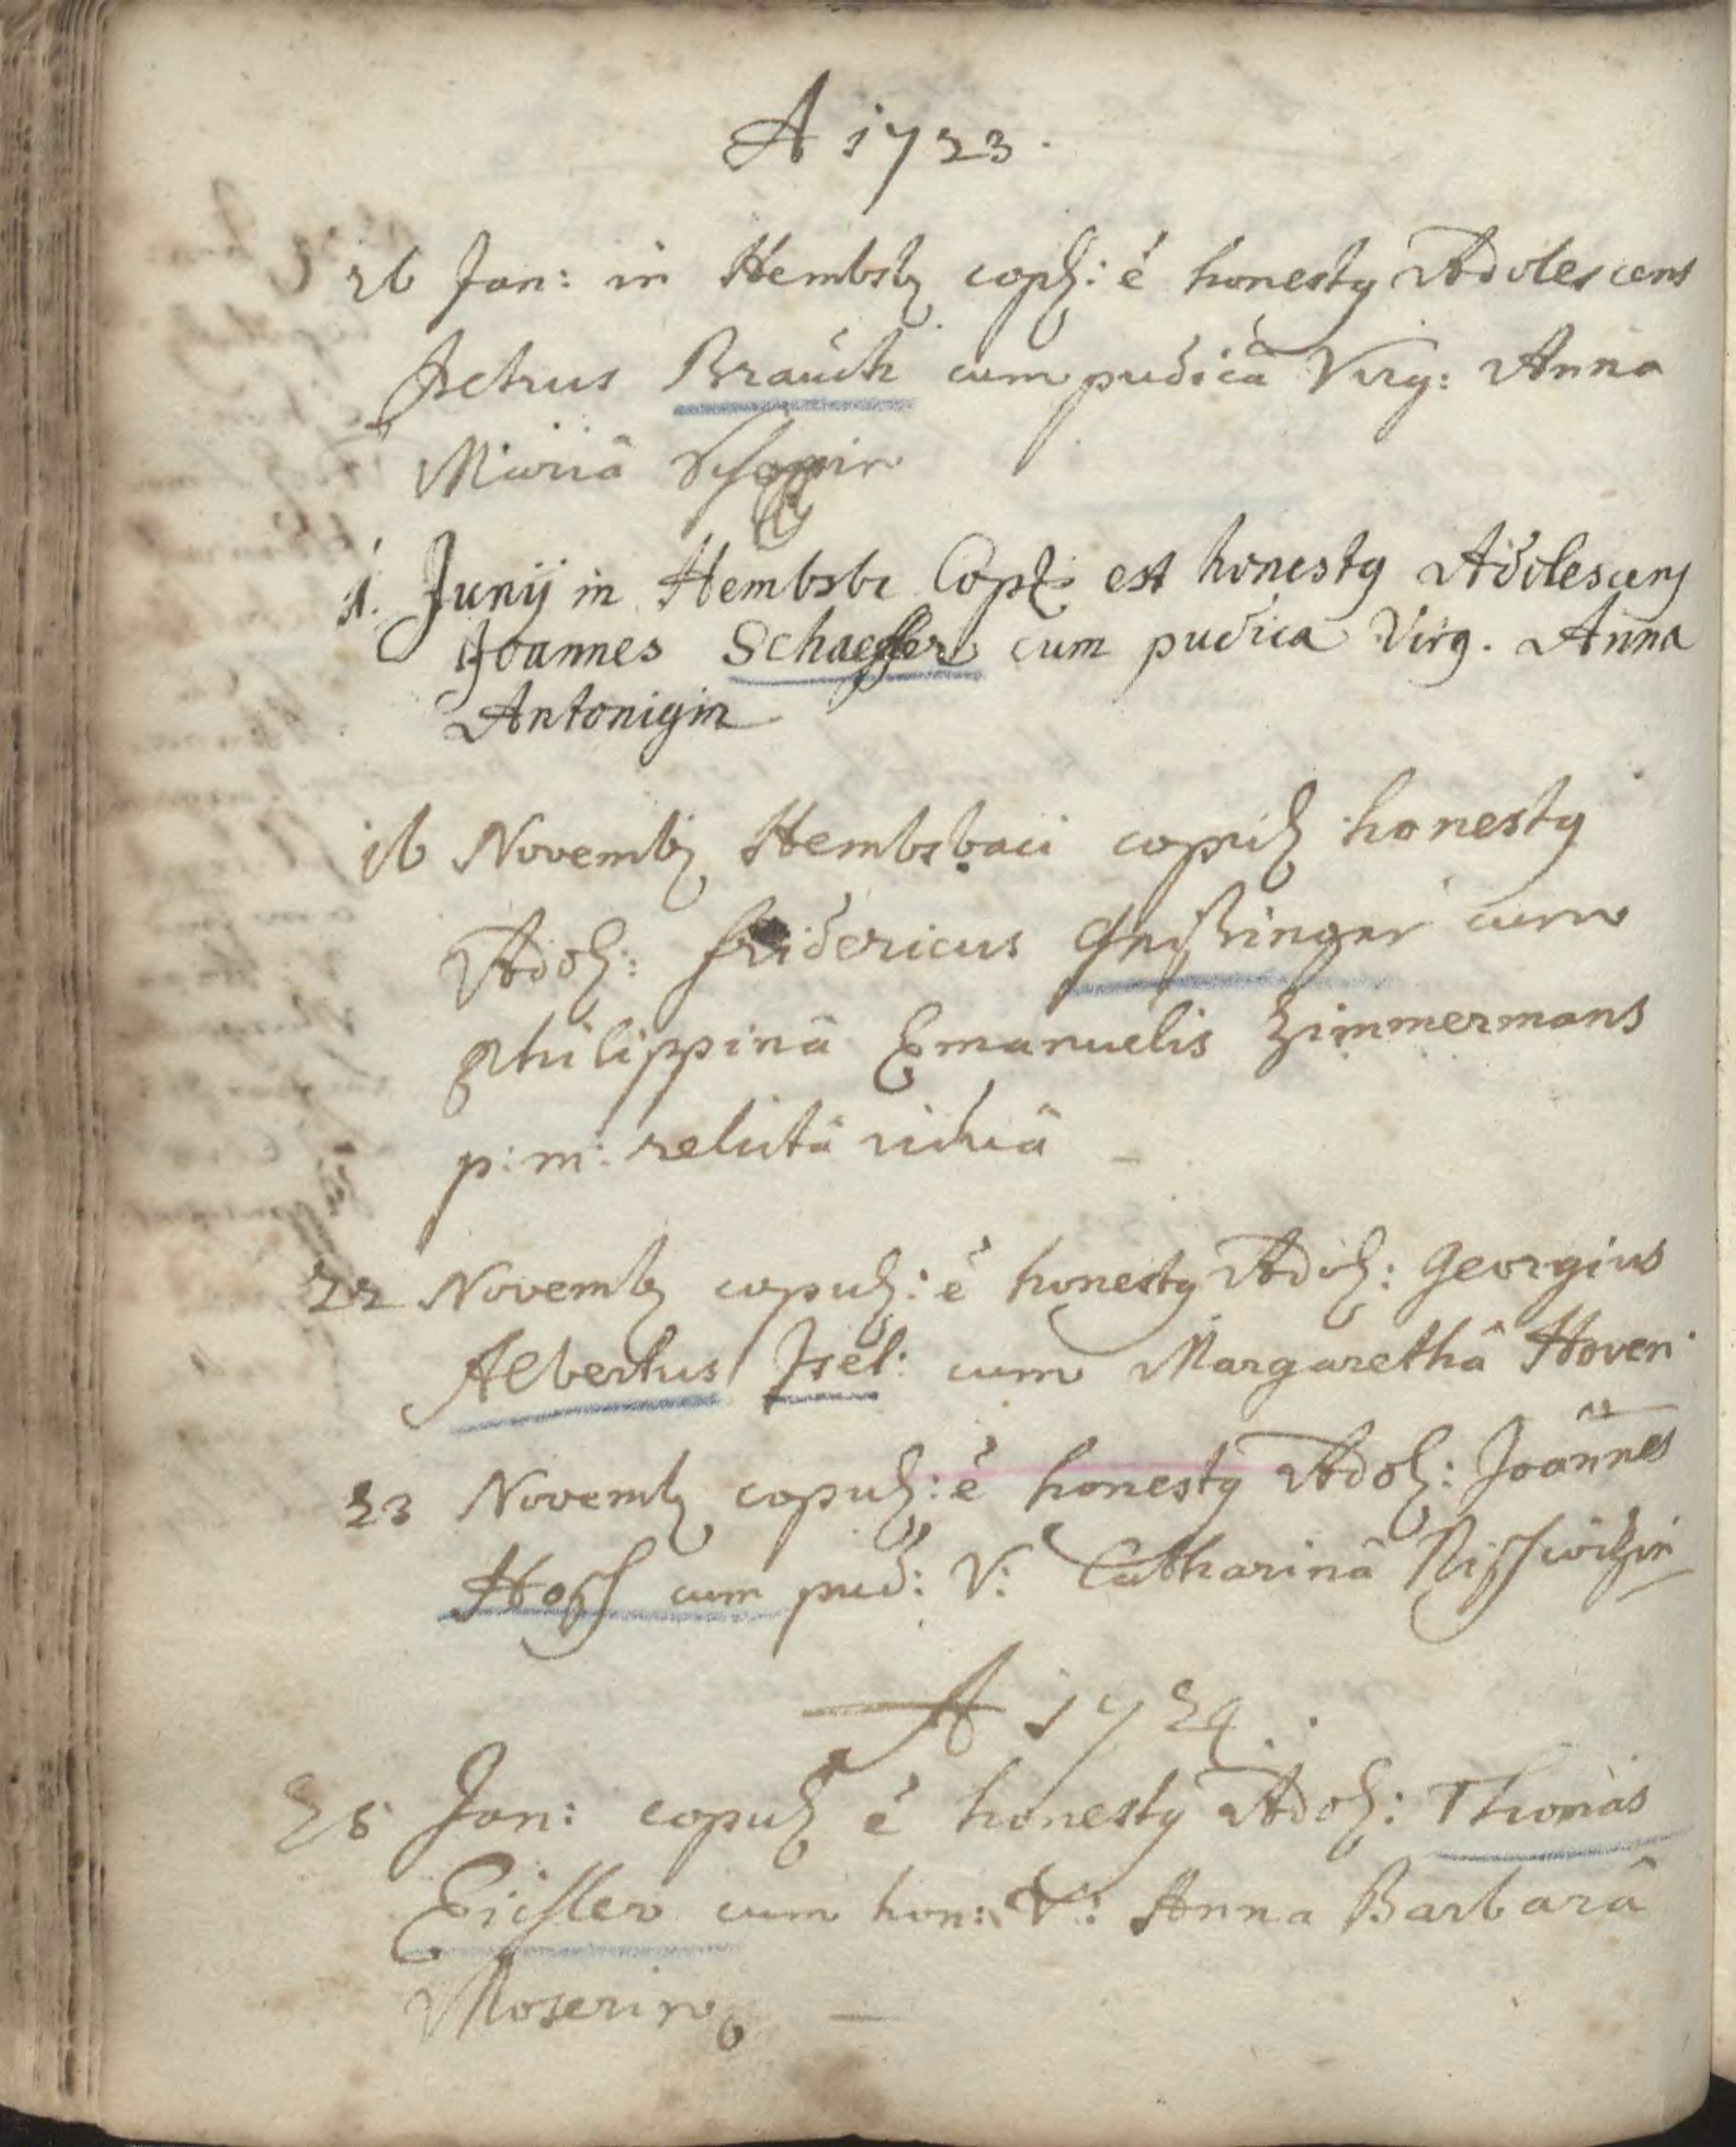 A 1723.
26 Jan: in Hembsb copl: ê honesty Adolescens
Petrus Braŭch cum pudicâ Virg: Anna
Mariâ
1. Junij in Hembsb. Copl: est honesty Adolescens
Joannes Schaeffer cum pudica Virg. Anna
Antonigin
16 Novemb Hembsbaci copul honesty
Adol: fridericus cum
Philippinâ Emanuelis Zimmermans
p: m: relictâ viduâ
22 Novemb copul: ê honesty Adol: Georgius
Albertus Jsel: cum Margarethâ Hoveri
23 Novemb copul: ê honesty Adol: Joannes
Hoff cum pud: V: Catharinâ
A 1724.
25 Jan: copul ê honesty Adol: Thomas
Eichler cum hon: V: Anna Barbarâ
Moserin